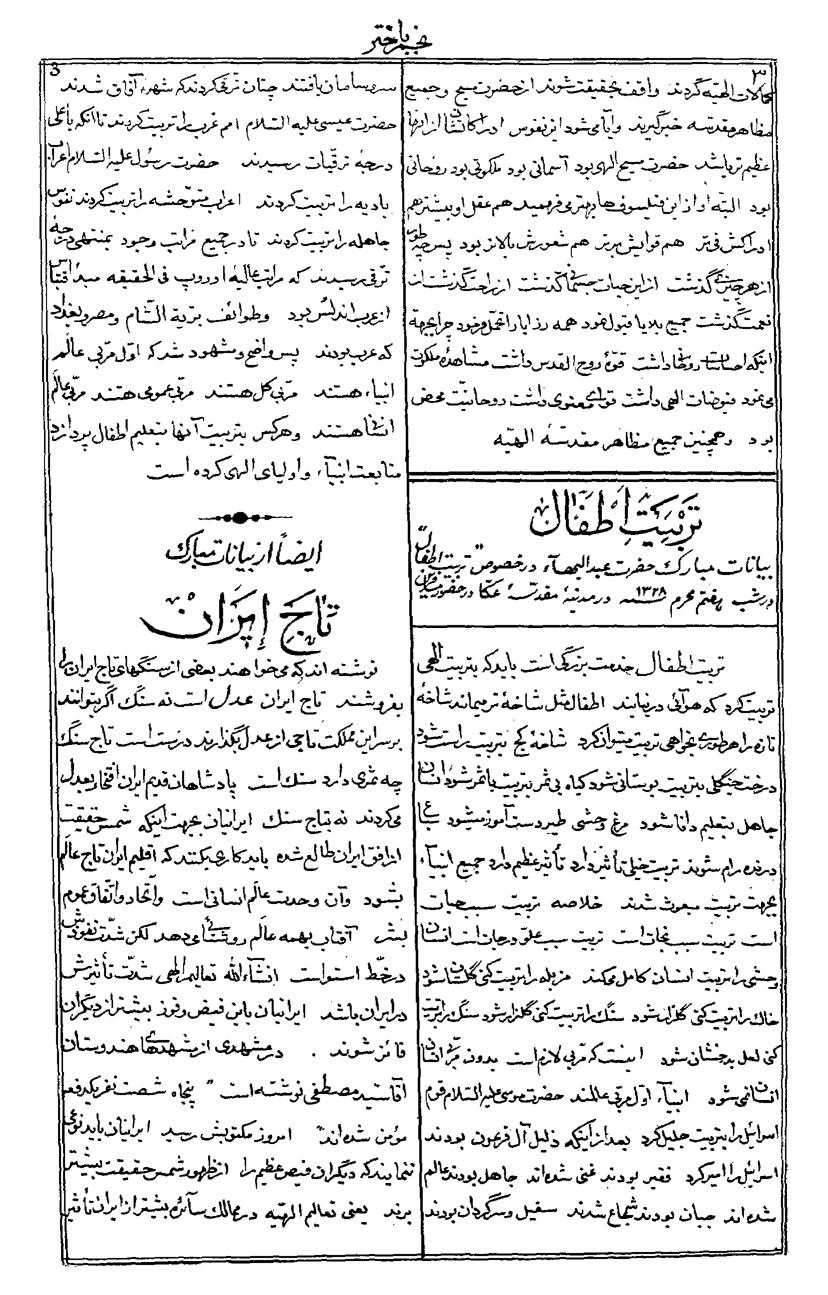 نجم باختر
۳
کمالات الهیّه گردند واقف بحقیقت شوند از حضرت مسیح و جمیع
مظاهر مقدّسه خبر گیرند و آیا می‌شود این نفوس ادراکاتشان از آنها
عظیم‌تر باشد حضرت مسیح الهی بود آسمانی بود ملکوتی بود روحانی
بود البتّه او از این فیلسوف‌ها بهتر می‌فهمید هم عقل او بیشتر هم
ادراکش فی‌تر هم قوایش برتر هم شعورش بالاتر بود پس چه طور
از هر چیزی گذشت از این حیات جسمانی گذشت از راحت گذشت از
نعمت گذشت جمیع بلایا قبول فرمود همه رزایا را تحمّل فرمود چرا بجهة
اینکه احساسات روحانی داشت قوّهٔ روح القدس داشت مشاهدهٔ ملکوت
می‌نمود فیوضات الهی داشت قوای معنوی داشت روحانیّت محض
بود و همچنین جمیع مظاهر مقدّسه الهیّه
تربیت اطفال
بیانات مبارک حضرت عبدالبهآء در خصوص "تربیت اطفال"
در شب هفتم محرم سنه ۱۳۲۸ در مدینهٔ مقدّسهٔ عکّا در حضور مسافرین
تربیت اطفال خدمت بزرگی است باید که بتربیت الهی
تربیت کرد که هوائی در نیایند اطفال مثل شاخهٔ تر میمانند شاخهٔ
تازه را هر طوری بخواهی تربیت میتوان کرد شاخهٔ کج بتربیت راست شود
درخت جنگلی بتربیت بوستانی شود گیاه بی ثمر بتربیت با ثمر شود انسان
جاهل بتعلیم دانا شود مرغ وحشی طیر دست آموز میشود سباع
درنده رام شوند تربیت خیلی تأثیر دارد تأثیر عظیم دارد جمیع انبیآء
بجهت تربیت مبعوث شدند خلاصه تربیت سبب حیات
است تربیت سبب نجات است تربیت سبب علوّ درجات است انسان
وحشی را تربیت انسان کامل میکند مزبله را تربیت کنی گلستان شود
خاک را تربیت کنی گلزار شود سنگ را تربیت کنی گلزار شود سنگ را تربیت
کنی لعل بدخشان شود اینست که مربّی لازم است بدون مربّی انسان
انسان نمی‌شود انبیآء اوّل مربّی عالمند حضرت موسی علیه السّلام قوم
اسرائیل را بتربیت جلیل کرد بعد از اینکه ذلیل آل فرعون بودند
اسرائیل را امیر کرد فقیر بودند غنی شده‌اند جاهل بودند عالم
شده‌اند جبان بودند شجاع شدند سفیل و سرگردان بودند
3
سر و سامان یافتند چنان ترقّی کردند که شهرهٔ آفاق شدند
حضرت عیسی علیه السّلام امم غرب را تربیت کردند تا آنکه باعلی
درجهٔ ترقّیات رسیدند حضرت رسول علیه السّلام اعراب
بادیه را تربیت کردند اعراب متوحّشه را تربیت کردند نفوس
جاهله را تربیت کردند تا در جمیع مراتب وجود بمنتهی درجهٔ
ترقّی رسیدند که مراتب عالیهٔ اوروپ فی الحقیقه مبدأ اقتباس
از عرب اندلس بود و طوائف بریّة الشّام و مصر و بغداد
که عرب بودند پس واضح و مشهود شد که اوّل مربّی عالم
انبیاء هستند مربّی کل هستند مربّی عمومی هستند مربّی عالم
انسانی هستند و هر کس بتربیت آنها بتعلیم اطفال پردازد
متابعت انبیآء و اولیای الهی کرده است
ایضاً از بیانات مبارک
تاج ایران
نوشته‌اند که می‌خواهند بعضی از سنگهای تاج ایران را
بفروشند تاج ایران عدل است نه سنگ اگر بتوانند
بر سر این مملکت تاجی از عدل بگذارند درست است تاج سنگ
چه ثمری دارد سنگ است پادشاهان قدیم ایران افتخار بعدل
می‌کردند نه بتاج سنگ ایرانیان بجهت اینکه شمس حقیقت
از افق ایران طالع شده باید کاری بکنند که اقلیم ایران تاج عالم
بشود و آن وحدت عالم انسانی است و اتّحاد و اتّفاق عموم
بشر آفتاب بهمه عالم روشنائی می‌دهد لکن شدّت نفوذش
در خطّ استواست انشآءاللّه تعالیم الهی شدّت تأثیرش
در ایران باشد ایرانیان باین فیض و فوز بیشتر از دیگران
فائز شوند . در مشهدی از مشهدهای هندوستان
آقا سیّد مصطفی نوشته است "پنجاه شصت نفر یکدفعه
مؤمن شده‌اند" امروز مکتوبش رسید ایرانیان باید نوعی
ننمایند که دیگران فیض عظیم را از ظهور شمس حقیقت بیشتر
برند یعنی تعالیم الهیّه در ممالک سائره بیشتر از ایران تأثیر